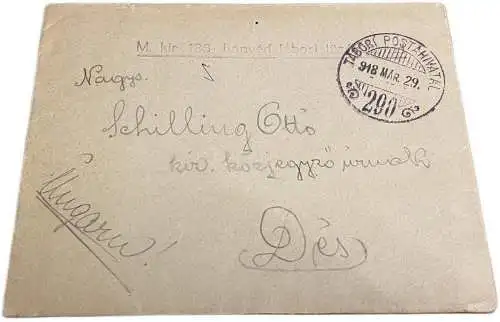 M. kir. honvéd tábori
TÁBORI POSTAHIVATAL
918 MÁR. 29.
290
Nagys.
Schilling Otto
kir. közjegyző úrnak
Ungarn!
Dés